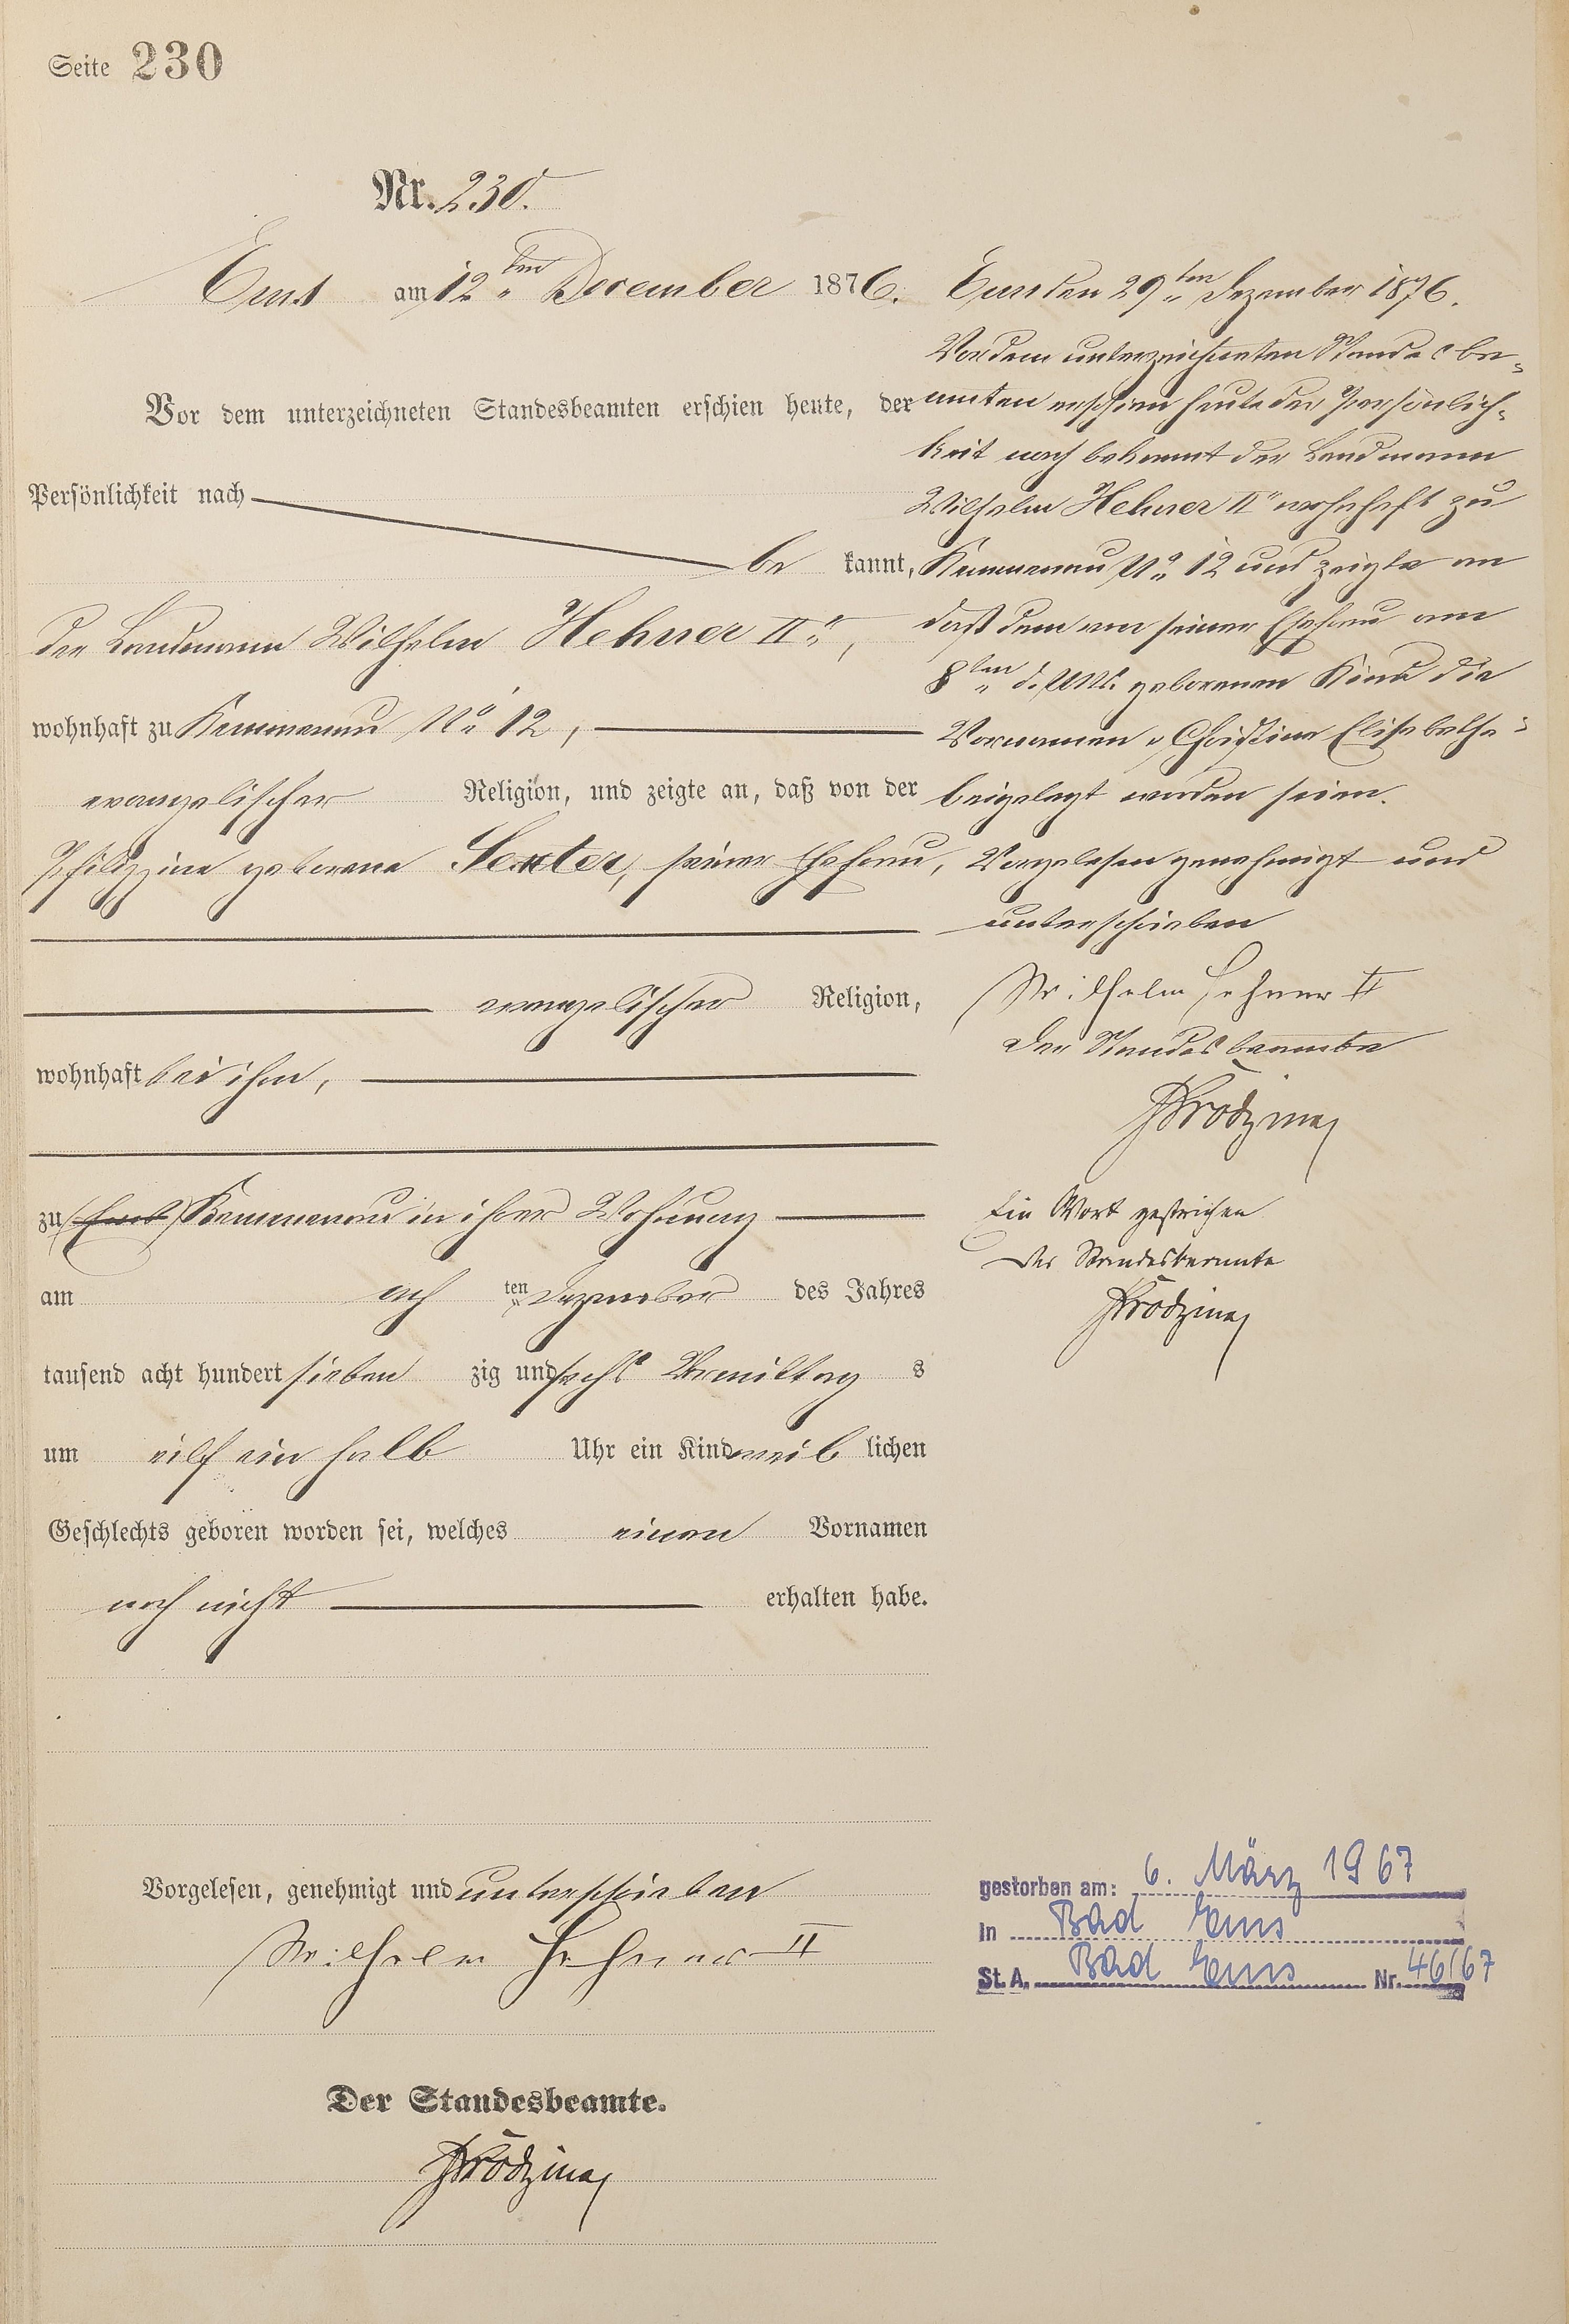 Seite 230
Nr. 230.
Ems am 12ten December 1876.
Vor dem unterzeichneten Standesbeamten erschien heute, der
Persönlichkeit nach
be kannt,
der Landmann Wilhelm Hehner IIr,
wohnhaft zu Kemmenau No 12,
evangelischer Religion, und zeigte an, daß von der
Philippine geborene seiner Ehefrau,
evangelischer Religion,
wohnhaft bei ihm,
zu Ems Kemmenau in ihrer Wohnung
am ach ten Dezember des Jahres
tausend acht hundert sieben zig und sechs Vormittag s
um eilf ein halb Uhr ein Kind weib lichen
Geschlechts geboren worden sei, welches einen Vornamen
noch nicht erhalten habe.
Vorgelesen, genehmigt und unterschrieben
Wilhelm Hehner II
Der Standesbeamte.
Ems den 29ten Dezember 1876.
Vor dem unterzeichneten Standesbe-
amten erschien heute der Persönlich-
keit nach bekannt der Landmann
Wilhelm Hehner IIr wohnhaft zu
Kemmenau No 12 und zeigte an
daß dem von seiner Ehefrau am
8ten d. Mts. geborenen Kind die
Vornamen „Christine Elisabethe"
beigelegt worden seien.
Vorgelesen genehmigt und
unterschrieben
Wilhelm Hehner II
Der Standesbeamte
Ein Wort gestrichen
Der Standesbeamte
gestorben am: 6. März 1967
In Bad Ems
St. A. Bad Ems Nr. 46/67